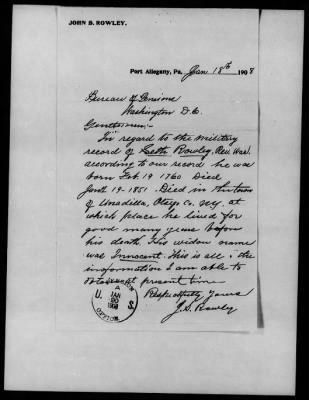 JOHN S. ROWLEY.
Port Allegany, Pa. Jan 18th 1908
Bureau of Pensions
Washington D.C.
Gentlemen:-
In regard to the military
record of Seth Rowley, Rev. War.
according to our record he was
born Feb. 19 1760 Died
19-1851. Died in the town
of Unadilla, Otsego Co. N.Y. at
which place he lived for
good many years before
his death His widow name
was Innocent. This is all the
information I am able to
at present time
Respectfully Yours
J. S. Rowley
U. S.
JAN
20
1908
OFFICE